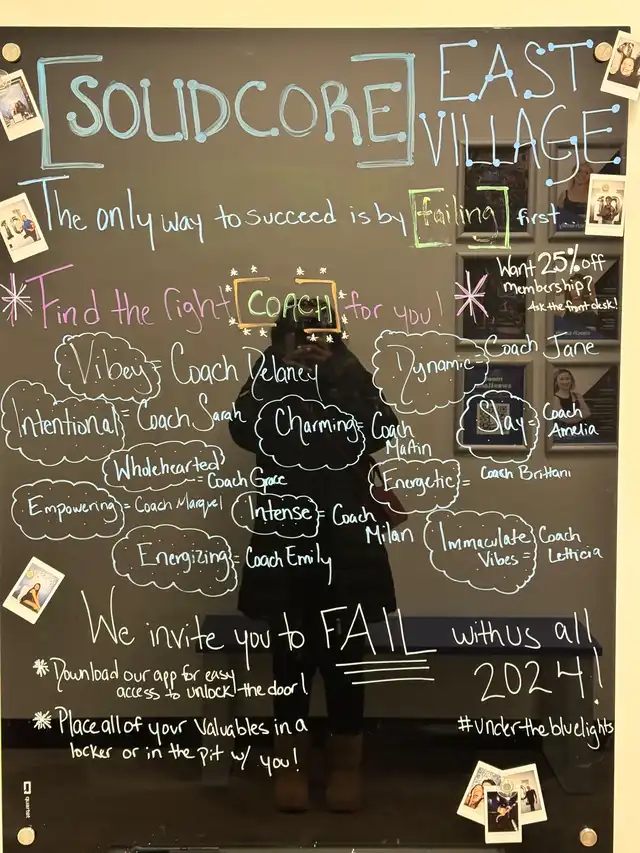 [SOLIDCORE] EAST VILLAGE
The only way to succeed is by [failing] first...
* Find the right [COACH] for you! *
Want 25% off
membership?
Ask the front desk!
Vibey = Coach Delaney
Dynamic = Coach Jane
Intentional = Coach Sarah
Charming = Coach Martin
Slay = Coach Amelia
Wholehearted = Coach Grace
Energetic = Coach Brittani
Empowering = Coach Marquel
Intense = Coach Milan
Immaculate Vibes = Coach Letticia
Energizing = Coach Emily
We invite you to FAIL with us all
2024!
* Download our app for easy
access to unlock the door!
#underthebluelights
* Place all of your valuables in a
locker or in the pit w/ you!
quartet